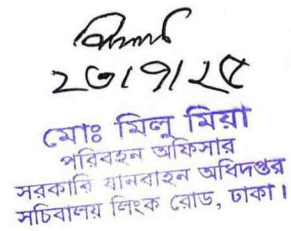 ২৩/৭/২৫
মোঃ মিলু মিয়া
পরিবহন অফিসার
সরকারি যানবাহন অধিদপ্তর
সচিবালয় লিংক রোড, ঢাকা।